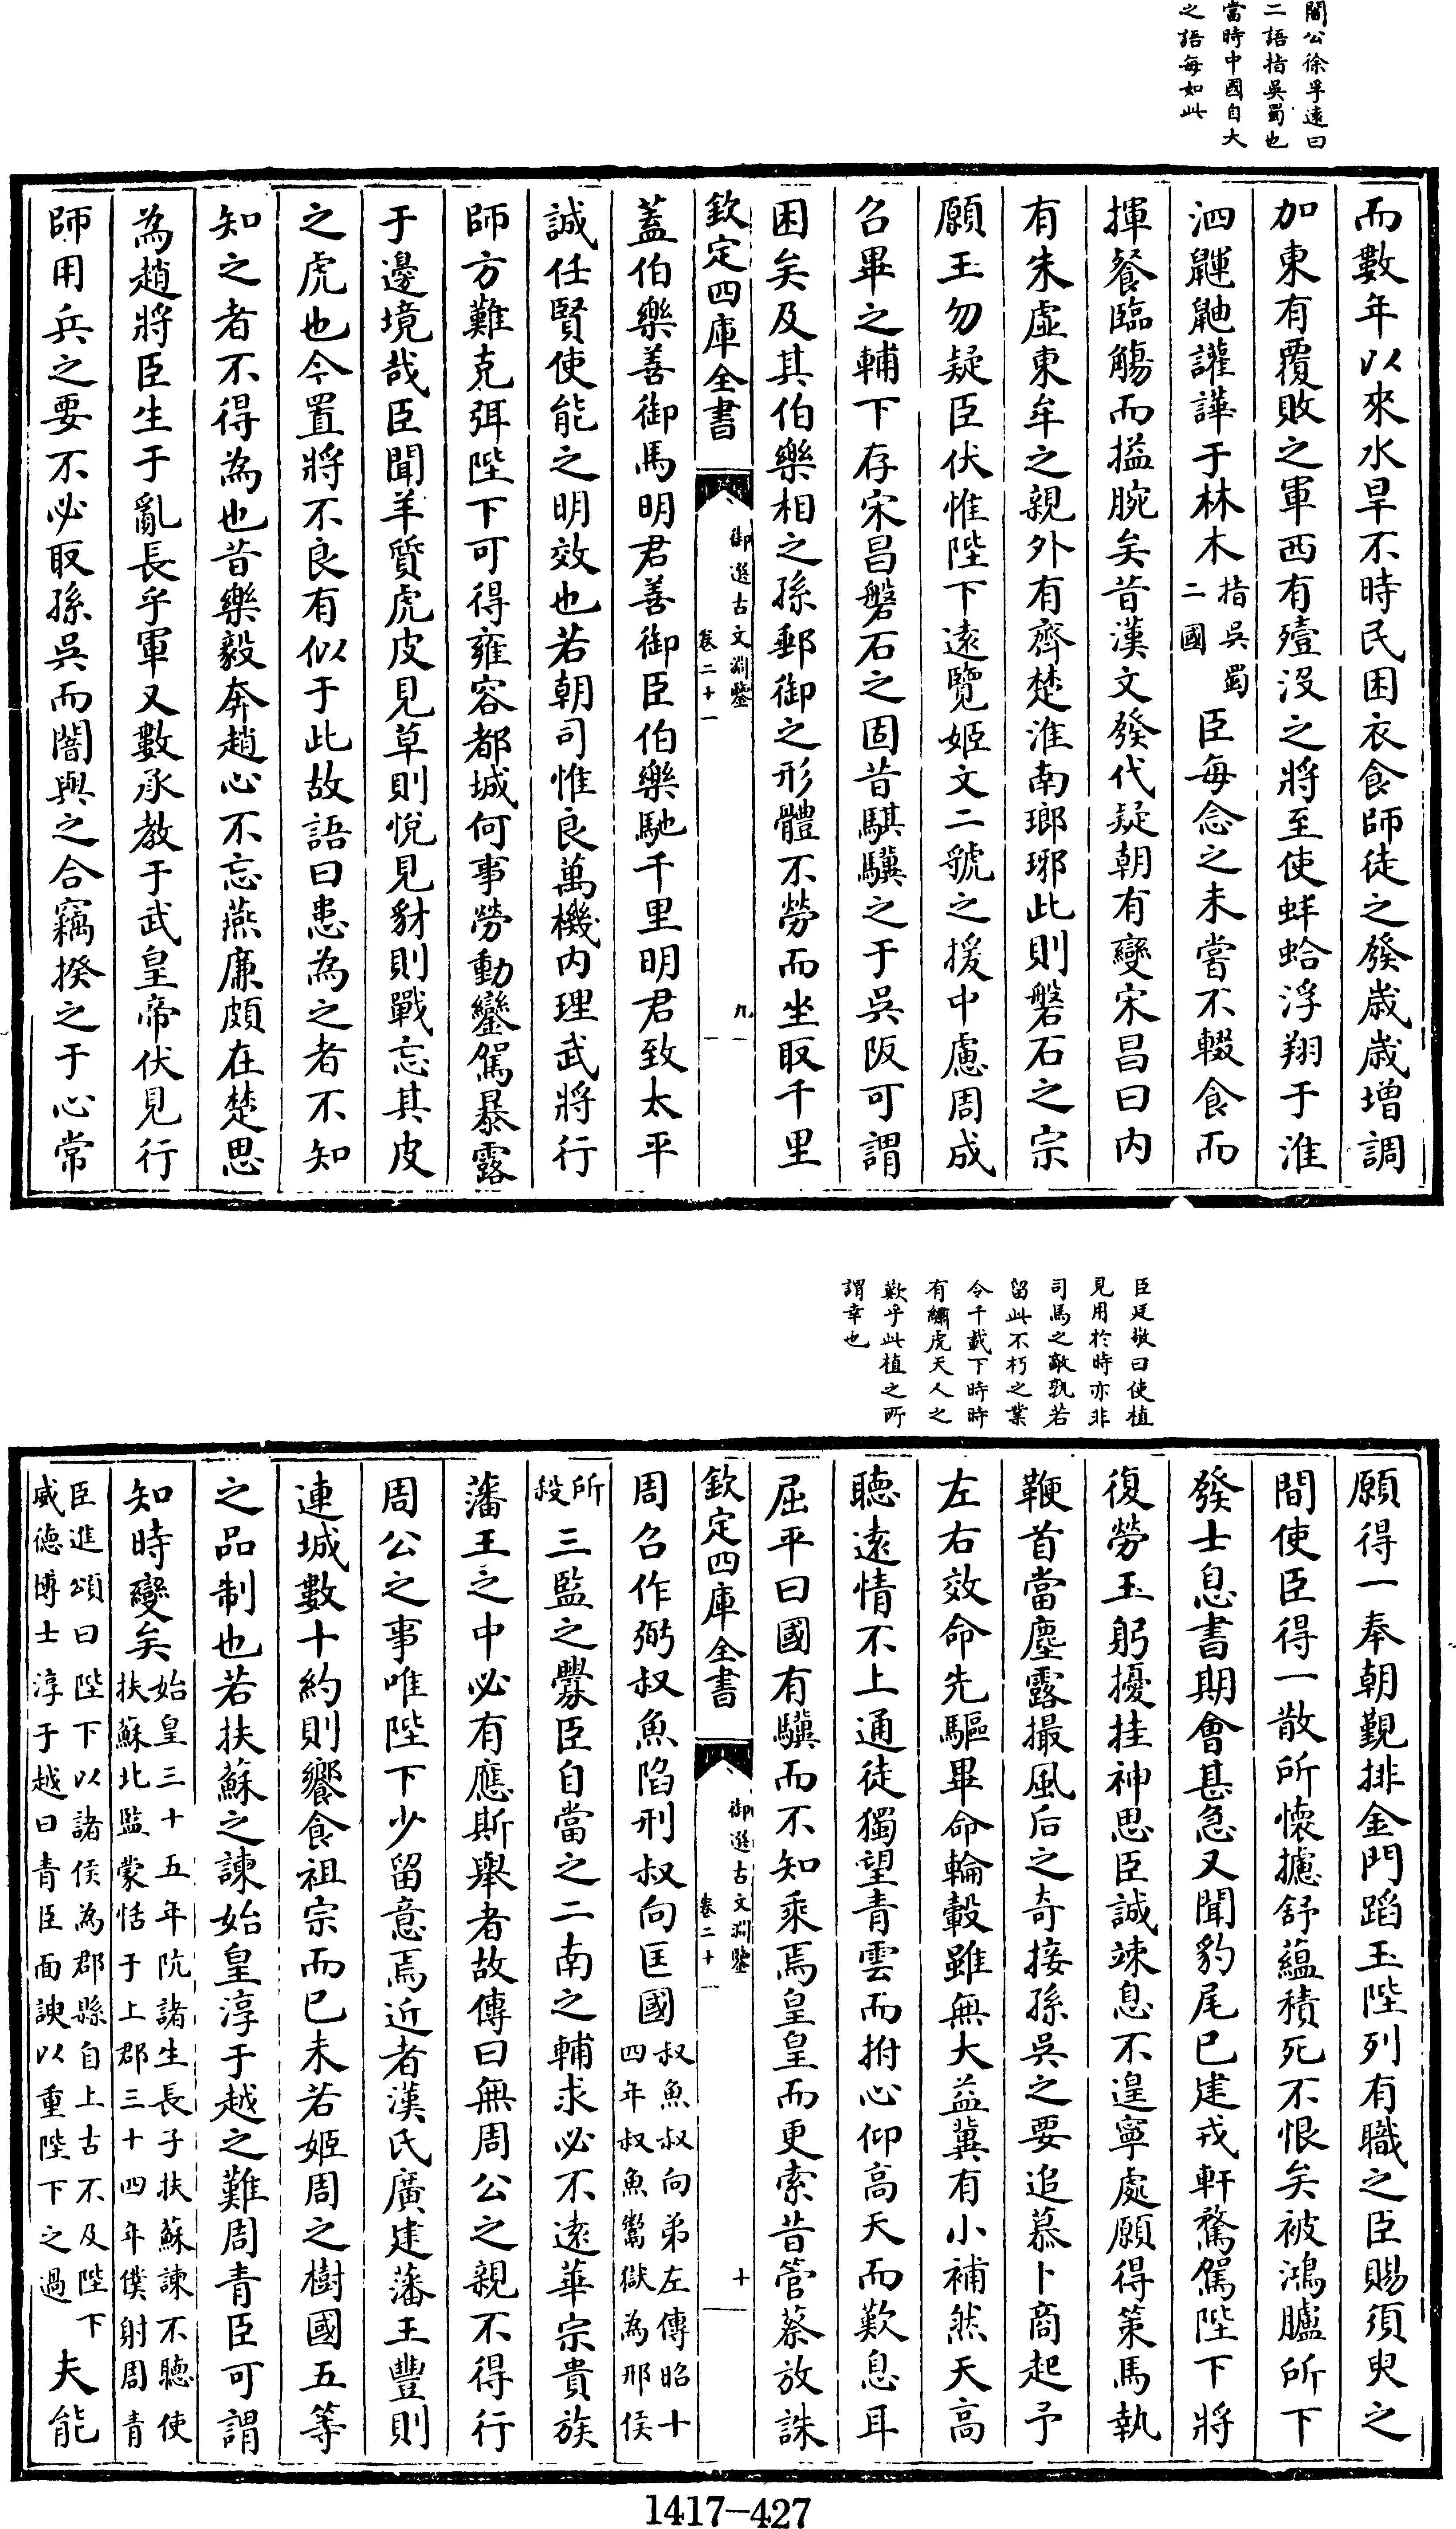 闇公徐孚遠曰
二語指吳蜀也
當時中國自大
之語每如此
而數年以來水旱不時民困衣食師徒之發歲歲增調
加東有覆敗之軍西有殪沒之將至使蚌蛤浮翔于淮
泗鼲鼬讙譁于林木指吳蜀二國臣每念之未嘗不輟食而
揮餐臨觴而搤腕矣昔漢文發代疑朝有變宋昌曰内
有朱虛東牟之親外有齊楚淮南瑯琊此則磐石之宗
願王勿疑臣伏惟陛下遠覽姬文二虢之援中慮周成
召畢之輔下存宋昌磐石之固昔騏驥之于吳阪可謂
困矣及其伯樂相之孫郵御之形體不勞而坐取千里
欽定四庫全書
御選古文淵鑒
卷二十一
九
蓋伯樂善御馬明君善御臣伯樂馳千里明君致太平
誠任賢使能之明效也若朝司惟良萬機内理武將行
師方難克弭陛下可得雍容都城何事勞動鑾駕暴露
于邊境哉臣聞羊質虎皮見草則悅見豺則戰忘其皮
之虎也今置將不良有似于此故語曰患為之者不知
知之者不得為也昔樂毅奔趙心不忘燕廉頗在楚思
為趙將臣生于亂長乎軍又數承教于武皇帝伏見行
師用兵之要不必取孫吳而闇與之合竊揆之于心常
臣廷敬曰使植
見用於時亦非
司馬之敵孰若
留此不朽之業
令千載下時時
有繡虎天人之
歎乎此植之所
謂幸也
願得一奉朝覲排金門蹈玉陛列有職之臣賜須臾之
間使臣得一散所懷攄舒蘊積死不恨矣被鴻臚所下
發士息書期會甚急又聞豹尾已建戎軒騖駕陛下將
復勞玉躬擾挂神思臣誠竦息不遑寧處願得策馬執
鞭首當塵露撮風后之奇接孫吳之要追慕卜商起予
左右效命先驅畢命輪轂雖無大益冀有小補然天高
聽遠情不上通徒獨望青雲而拊心仰高天而歎息耳
屈平曰國有驥而不知乘焉皇皇而更索昔管蔡放誅
欽定四庫全書
御選古文淵鑒
卷二十一
十
周召作弼叔魚陷刑叔向匡國叔魚叔向弟左傳昭十四年叔魚鬻獄為邢侯
所殺三監之釁臣自當之二南之輔求必不遠華宗貴族
藩王之中必有應斯舉者故傳曰無周公之親不得行
周公之事唯陛下少留意焉近者漢氏廣建藩王豐則
連城數十約則饗食祖宗而已未若姬周之樹國五等
之品制也若扶蘇之諫始皇淳于越之難周青臣可謂
知時變矣始皇三十五年阬諸生長子扶蘇諫不聽使扶蘇北監蒙恬于上郡三十四年僕射周青
臣進頌曰陛下以諸侯為郡縣自上古不及陛下威德博士淳于越曰青臣面諛以重陛下之過夫能
1417—427